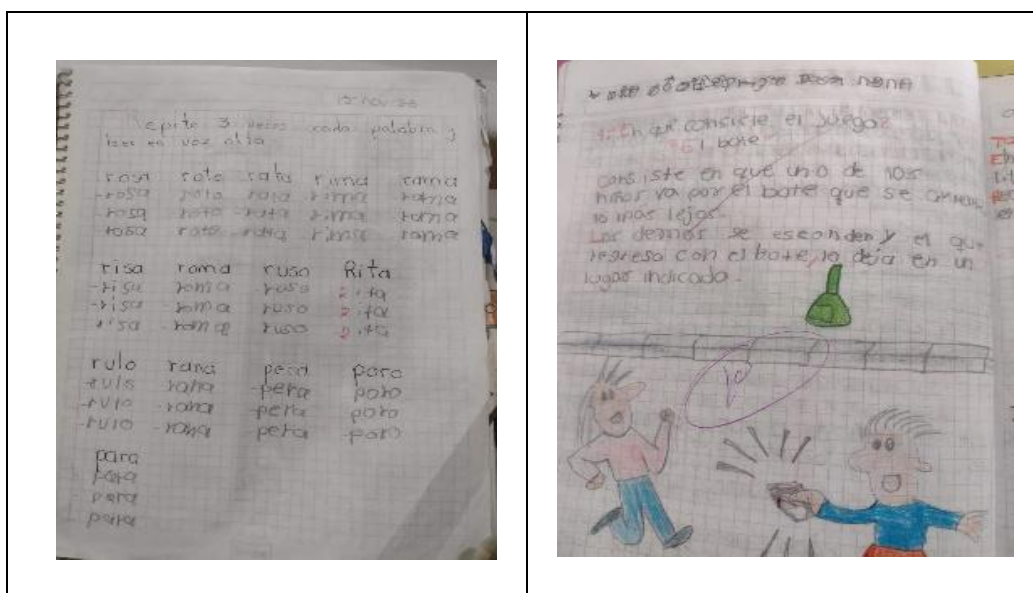 15-nov-23
Repite 3 veces cada palabra y
lee en voz alta
rosa roto rata rima rama
-rosa roto rata rima rama
-rosa roto -rata rima rama
-rosa roto -rata rima rama
risa roma ruso Rita
-risa roma ruso Rita
-risa -roma ruso Rita
risa -roma ruso Rita
rulo rana pera poro
-rulo rana -pera poro
-rulo -rana -pera poro
-rulo -rana -pera -poro
para
para
-para
para
En que consiste el juego?
El bote
Consiste en que uno de los
niños va por el bote que se
lo mas lejos.
Los demas se esconden y el que
regresa con el bote, lo deja en un
lugar indicado.